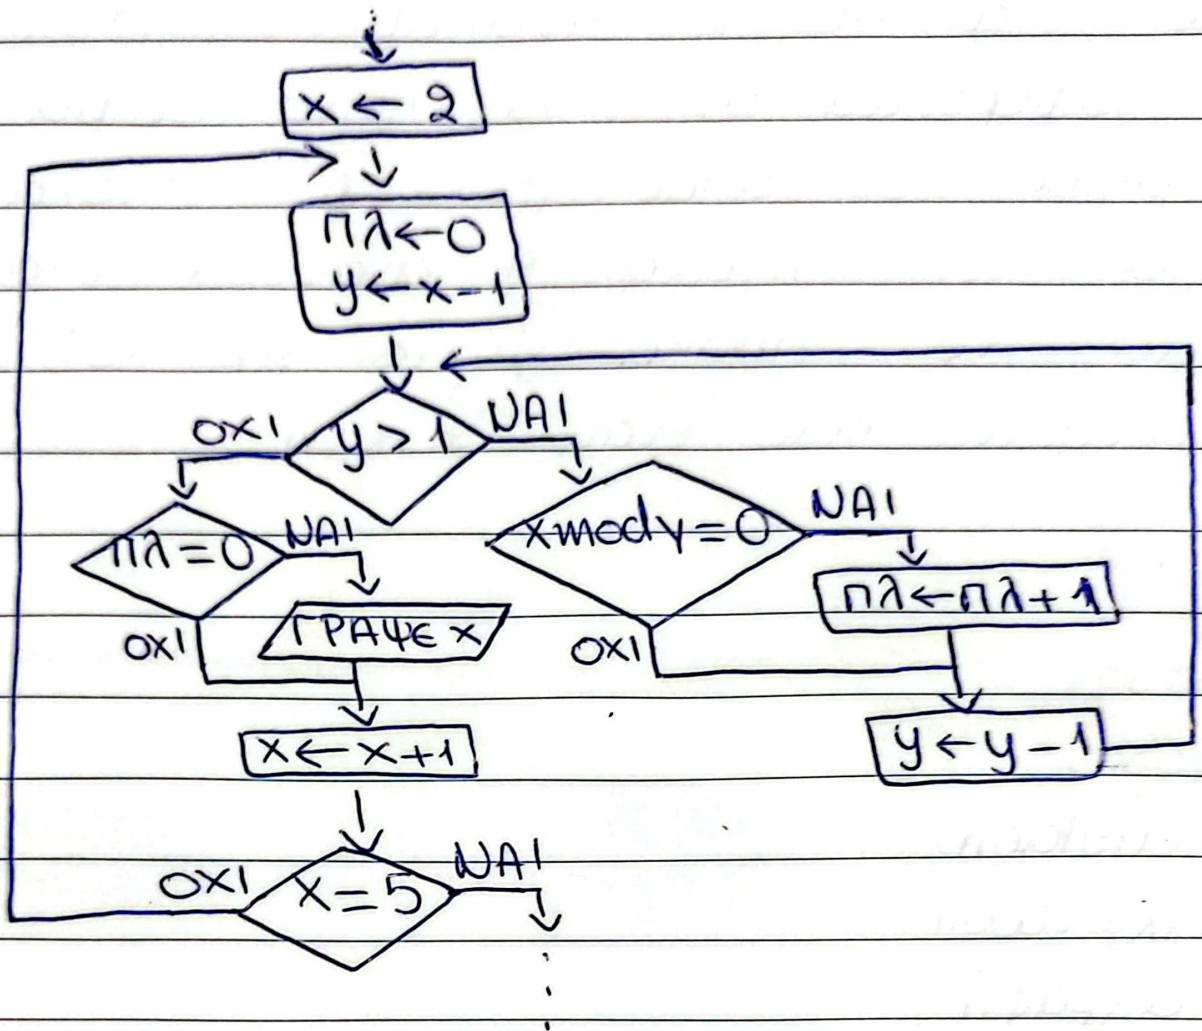 x ← 2
πλ←0
y←x-1
ΟΧΙ
y > 1
ΝΑΙ
πλ=0
ΝΑΙ
xmody=0
ΝΑΙ
πλ←πλ+1
ΟΧΙ
ΓΡΑΨΕ x
ΟΧΙ
x←x+1
y←y-1
ΟΧΙ
x=5
ΝΑΙ